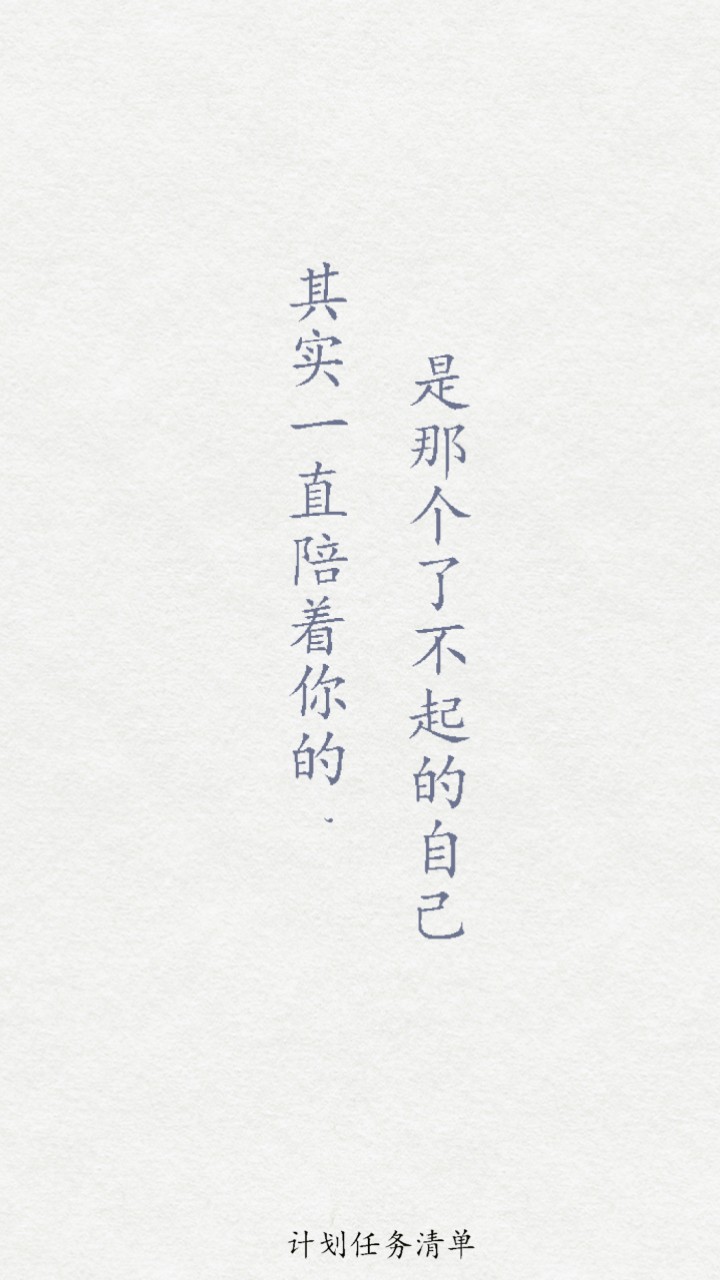 其实一直陪着你的，
是那个了不起的自己
计划任务清单